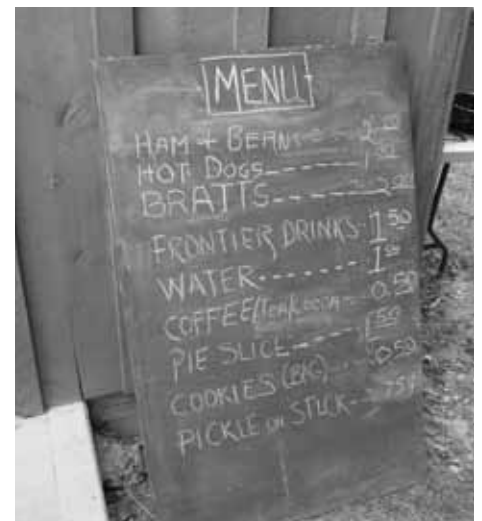 MENU
HAM + BEANS
HOT DOGS------
BRATTS------
FRONTIER DRINKS-- 1 50
WATER------
COFFEE/TEA/COCOA--- 0.50
PIE SLICE---- 1 50
COOKIES (EAC)--- 0.50
PICKLE ON STICK---